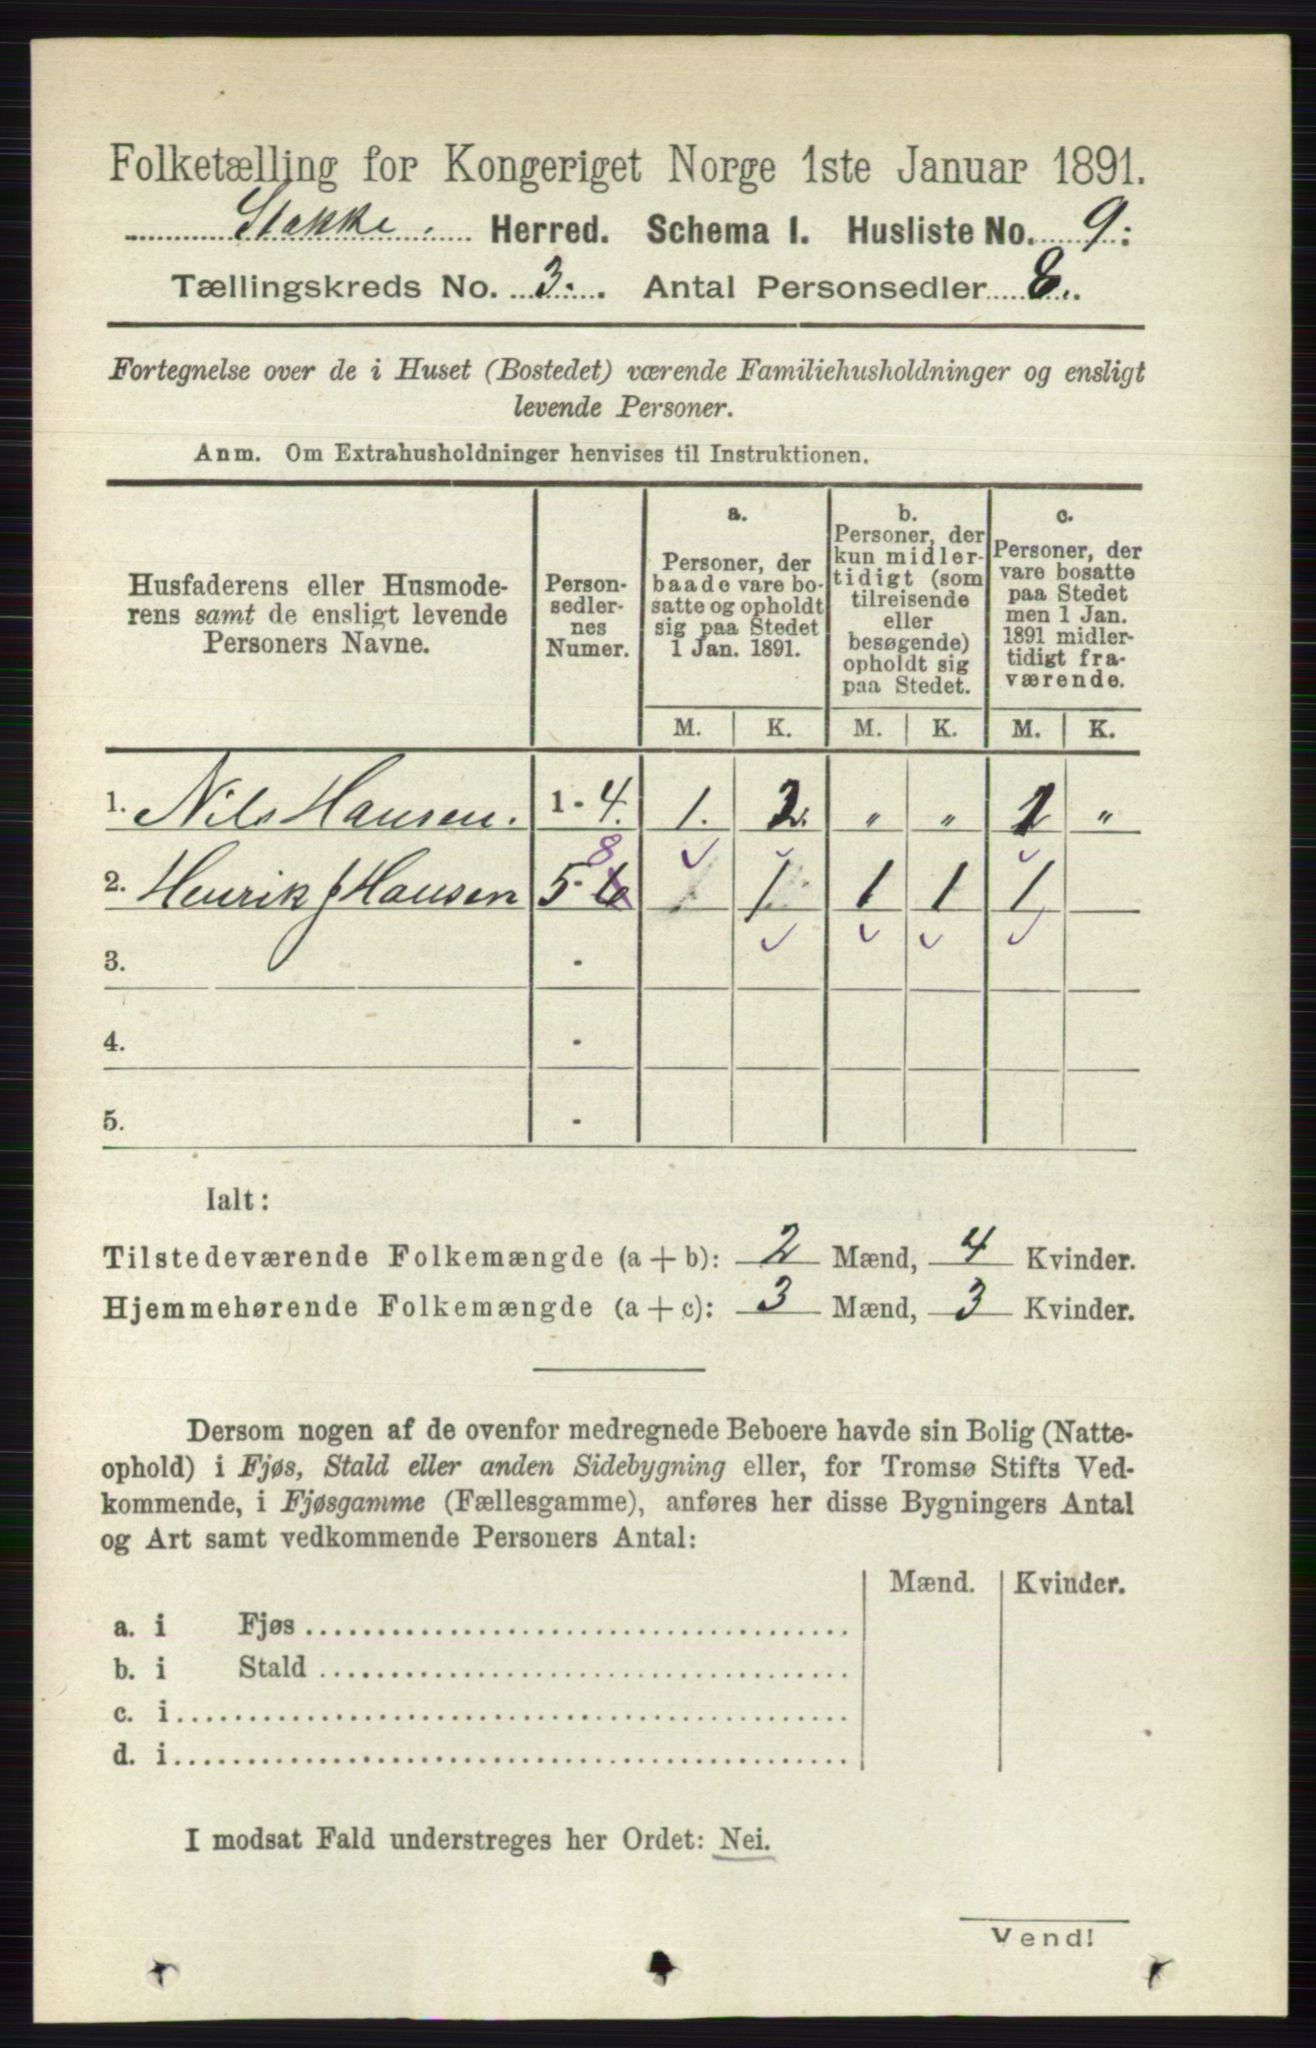 Folketælling for Kongeriget Norge 1ste Januar 1891.
Stokke. Herred. Schema I. Husliste No. 9:
Tællingskreds No. 3. Antal Personsedler 8.
Fortegnelse over de i Huset (Bostedet) værende Familiehusholdninger og ensligt
levende Personer.
Anm. Om Extrahusholdninger henvises til Instruktionen.
Husfaderens eller Husmode-
rens samt de ensligt levende
Personers Navne.
Person-
sedler-
nes
Numer.
a.
Personer, der
baade vare bo-
satte og opholdt
sig paa Stedet
1 Jan. 1891.
b.
Personer, der
kun midler-
tidigt (som
tilreisende
eller
besøgende)
opholdt sig
paa Stedet.
c.
Personer, der
vare bosatte
paa Stedet
men 1 Jan.
1891 midler-
tidigt fra-
værende.
M. K. M. K. M. K.
1. Nils Hansen. 1-4. 1. 2. " " 2 "
8
2. Henrik J Hansen 5-6 1 1 1 1
3. -
4. -
5. -
Ialt:
Tilstedeværende Folkemængde (a + b): 2 Mænd, 4 Kvinder.
Hjemmehørende Folkemængde (a + c): 3 Mænd, 3 Kvinder.
Dersom nogen af de ovenfor medregnede Beboere havde sin Bolig (Natte-
ophold) i Fjøs, Stald eller anden Sidebygning eller, for Tromsø Stifts Ved-
kommende, i Fjøsgamme (Fællesgamme), anføres her disse Bygningers Antal
og Art samt vedkommende Personers Antal:
Mænd. Kvinder.
a. i Fjøs
b. i Stald
c. i
d. i
I modsat Fald understreges her Ordet: Nei.
Vend!